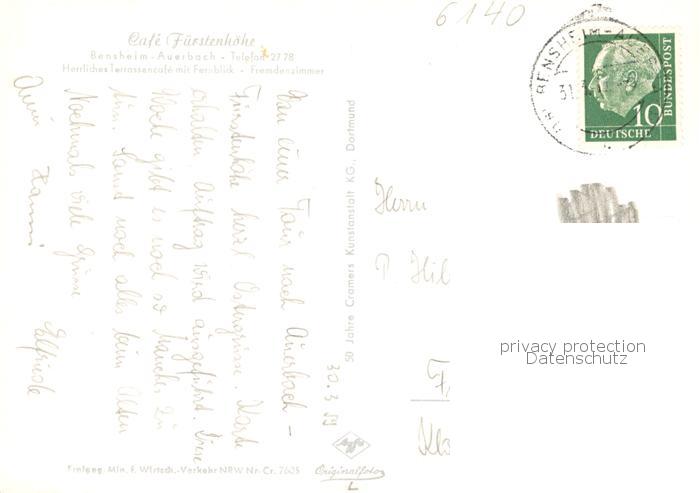 6140
Café Fürstenhöhe
Bensheim-Auerbach - Telefon 2778
Herrliches Terrassencafé mit Fernblick - Fremdenzimmer
BENSHEIM-AUER
31.
DEUTSCHE
BUNDESPOST
10
30.3.59
Von einer Tour nach Auerbach -
Fürstenhöhe herzl. Ostergrüsse. Karte
erhalten, Auftrag wird ausgeführt. Diese
Woche gibt es noch so manches zu
tun. Sonst noch alles beim Alten
Nochmals viele Grüsse Elfriede
Hanni
50 Jahre Cramers Kunstanstalt KG., Dortmund
Herrn
P. Hil
privacy protection
Datenschutz
Agfa
Originalfoto
L
Freigeg. Min. f. Wirtsch.-Verkehr NRW Nr. Cr. 7605